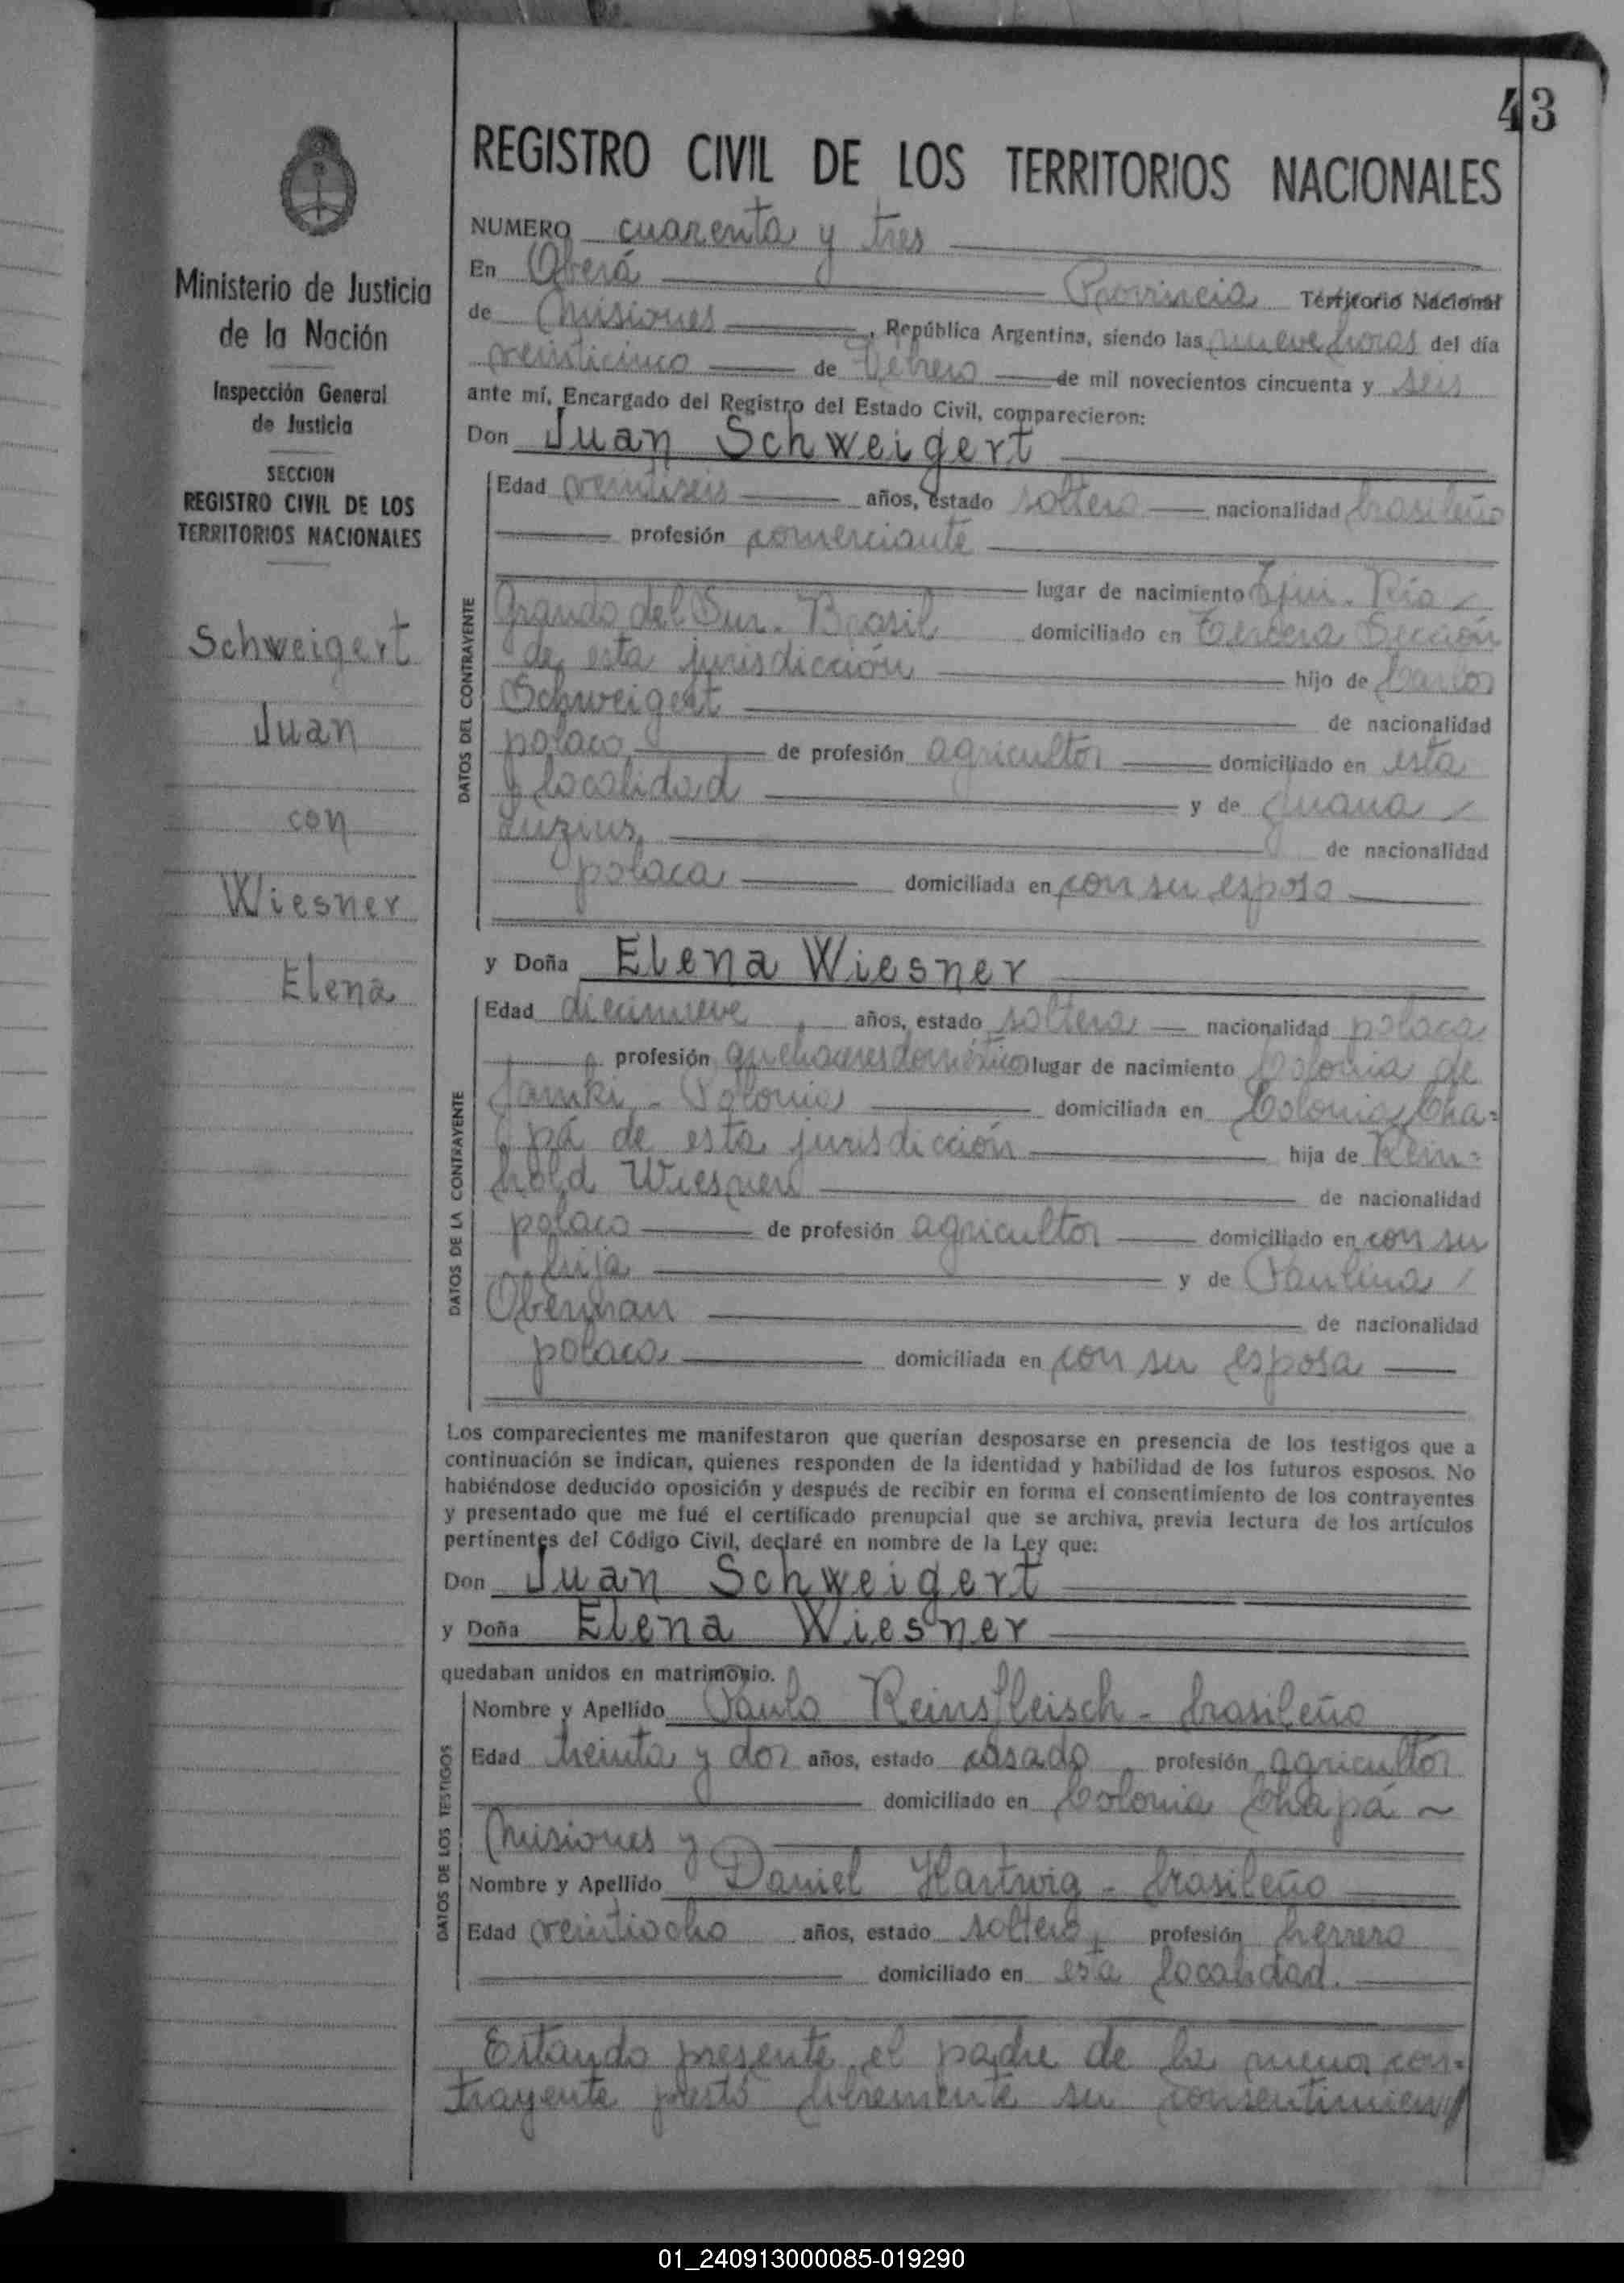 43
REGISTRO CIVIL DE LOS TERRITORIOS NACIONALES
Ministerio de Justicia
de la Nación
Inspección General
de Justicia
SECCION
REGISTRO CIVIL DE LOS
TERRITORIOS NACIONALES
Schweigert
Juan
con
Wiesner
Elena
NUMERO cuarenta y tres
En Oberá Provincia Territorio Nacional
de Misiones, República Argentina, siendo las nueve horas del día
veinticinco de Febrero de mil novecientos cincuenta y seis
ante mí, Encargado del Registro del Estado Civil, comparecieron:
Don Juan Schweigert
DATOS DEL CONTRAYENTE
Edad veintiseis años, estado soltero nacionalidad brasileño
profesión comerciante
lugar de nacimiento Ijui - Río
Grande del Sur - Brasil domiciliado en Tercera Sección
de esta jurisdicción hijo de Carlos
Schweigert de nacionalidad
polaco de profesión agricultor domiciliado en esta
localidad y de Juana
Luzius de nacionalidad
polaca domiciliada en con su esposo
y Doña Elena Wiesner
DATOS DE LA CONTRAYENTE
Edad diecinueve años, estado soltera nacionalidad polaca
profesión quehaceres doméstico lugar de nacimiento Colonia de
- Polonia domiciliada en Colonia Cha=
pá de esta jurisdicción hija de Rein=
hold Wiesner de nacionalidad
polaco de profesión agricultor domiciliado en con su
hija y de Paulina
Oberman de nacionalidad
polaca domiciliada en con su esposa
Los comparecientes me manifestaron que querían desposarse en presencia de los testigos que a
continuación se indican, quienes responden de la identidad y habilidad de los futuros esposos. No
habiéndose deducido oposición y después de recibir en forma el consentimiento de los contrayentes
y presentado que me fué el certificado prenupcial que se archiva, previa lectura de los artículos
pertinentes del Código Civil, declaré en nombre de la Ley que:
Don Juan Schweigert
y Doña Elena Wiesner
quedaban unidos en matrimonio.
DATOS DE LOS TESTIGOS
Nombre y Apellido Paulo Reinsfleisch - brasileño
Edad treinta y dos años, estado casado profesión agricultor
domiciliado en Colonia Chapá ~
Misiones y
Nombre y Apellido Daniel Hartwig - brasileño
Edad veintiocho años, estado soltero, profesión herrero
domiciliado en esta localidad.
Estando presente el padre de la menor con-
trayente prestó libremente su
01_240913000085-019290